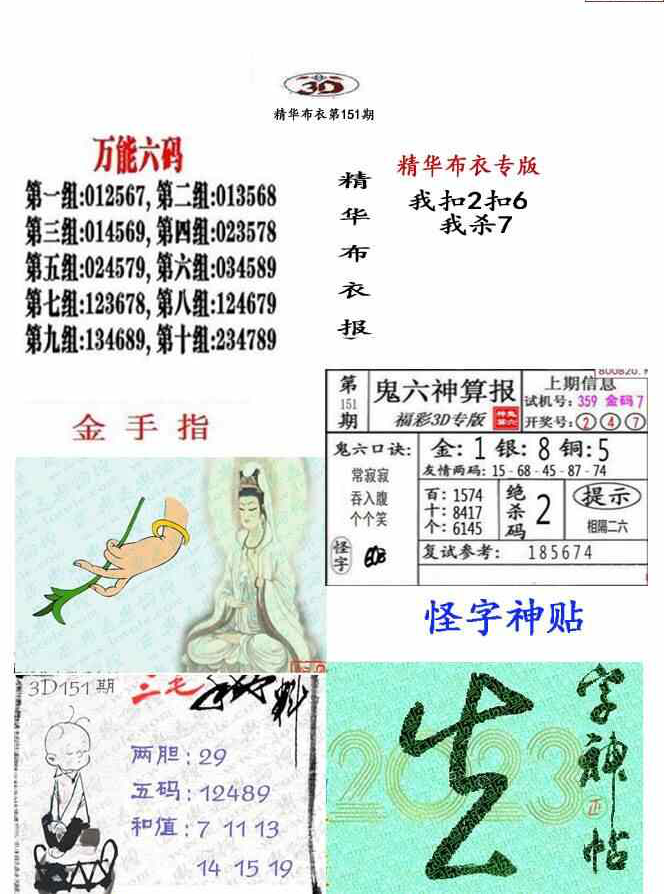 3D
精华布衣第151期
万能六码
第一组:012567,第二组:013568
第三组:014569,第四组:023578
第五组:024579,第六组:034589
第七组:123678,第八组:124679
第九组:134689,第十组:234789
精华布衣报
精华布衣专版
我扣2扣6
我杀7
金手指
第151期
鬼六神算报
福彩3D专版
上期信息
试机号:359 金码7
开奖号:②④⑦
鬼六口诀:
常寂寂
吞入腹
个个笑
怪字
金:1 银:8 铜:5
友情两码:15-68-45-87-74
百:1574
十:8417
个:6145
绝杀码 2
提示
相隔二六
复试参考: 185674
怪字神贴
3D151期
三毛
料
两胆:29
五码:12489
和值:7 11 13
14 15 19
2023
字神帖